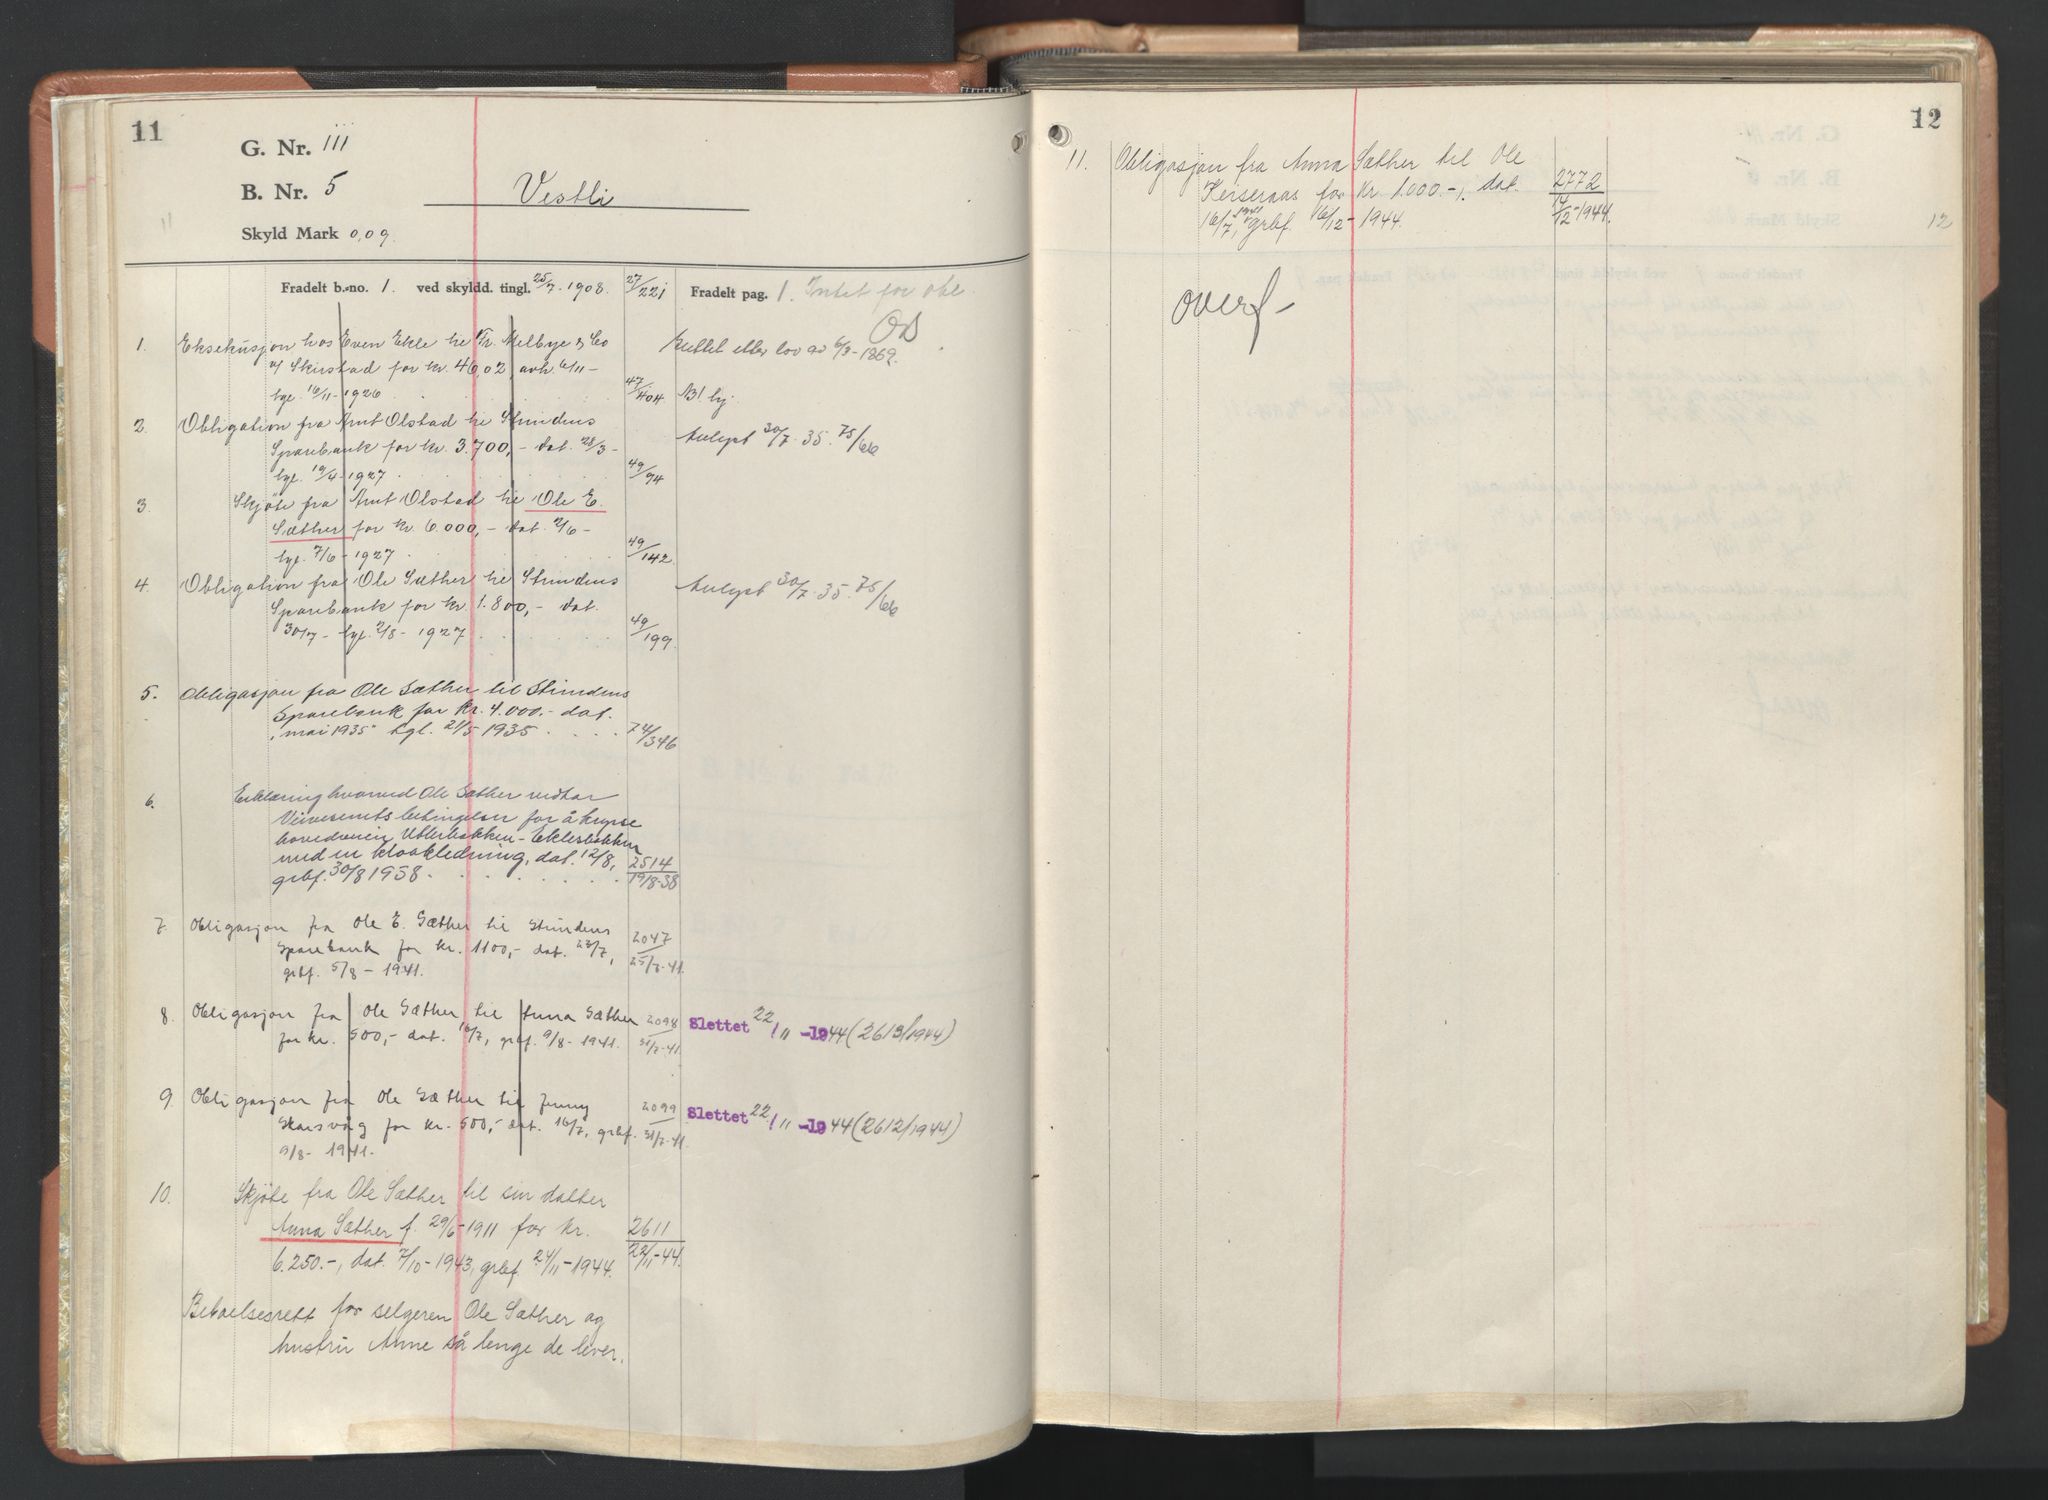 11
G. Nr. 111
B. Nr. 5
Vestli
Skyld Mark 0,09
Fradelt b.-no. 1. ved skyldd. tingl. 25/7-1908. 27/221 Fradelt pag. 1. Intet for obl.
OB
1. Eksekusjon hos Even Ekle til Tr. Melbye & Co
v/ Skirstad for kr. 46,02, avh. 6/11-
tgl. 16/11-1926 47/404
slettet etter lov av 6/3-1869.
2. Obligation fra Arnt Olstad til Strindens
Sparebank for kr. 3.700,- dat. 28/3-
tgl. 19/4-1927 49/94
Avlyst 30/7-35. 75/66
3. Skjöte fra Arnt Olstad til Ole E.
Sæther for kr. 6.000,- dat. 2/6-
tgl. 7/6-1927 49/142
4. Obligation fra Ole Sæther til Strindens
Sparebank for kr. 1.800,- dat.
30/7- tgl. 2/8-1927 49/199
Avlyst 30/7-35. 75/66
5. Obligasjon fra Ole Sæther til Strindens
Sparebank for kr. 4.000.- dat.
"mai 1935" tgl. 21/5 1935 74/346
6. Erklæring hvorved Ole Sæther vedtar
Veivesenets betingelser for å krysse
hovedveien Utlerbakken-Eklesbakken
med en kloakledning, dat. 12/8, 2514
grbf. 30/8 1938 19/8-38
7. Obligasjon fra Ole E. Sæther til Strindens
Sparebank for kr. 1100,- dat. 23/7, 2047
grbf. 5/8-1941. 25/7-41.
8. Obligasjon fra Ole Sæther til Anna Sæther 2098 Slettet 22/11-1944 (2613/1944)
for kr. 500,- dat. 16/7, grbf. 9/8-1941. 31/7-41.
9. Obligasjon fra Ole Sæther til Jenny 2099 Slettet 22/11-1944 (2612/1944)
Skarsvåg for kr. 500,- dat. 16/7, grbf. 31/7-41.
9/8-1941.
10. Skjöte fra Ole Sæther til sin datter
Anna Sæther f. 29/6-1911 for kr. 2611
6.250.-, dat. 7/10-1943, grbf. 24/11-1944. 22/11-44.
Beboelsesrett for selgeren Ole Sæther og
hustru Anne så lenge de lever.
12
11. Obligasjon fra Anna Sæther til Ole
Kerseraas for kr. 1.000.-, dat. 2772
16/7, 1941 grbf. 16/12-1944. 14/12-1944.
overf-
12